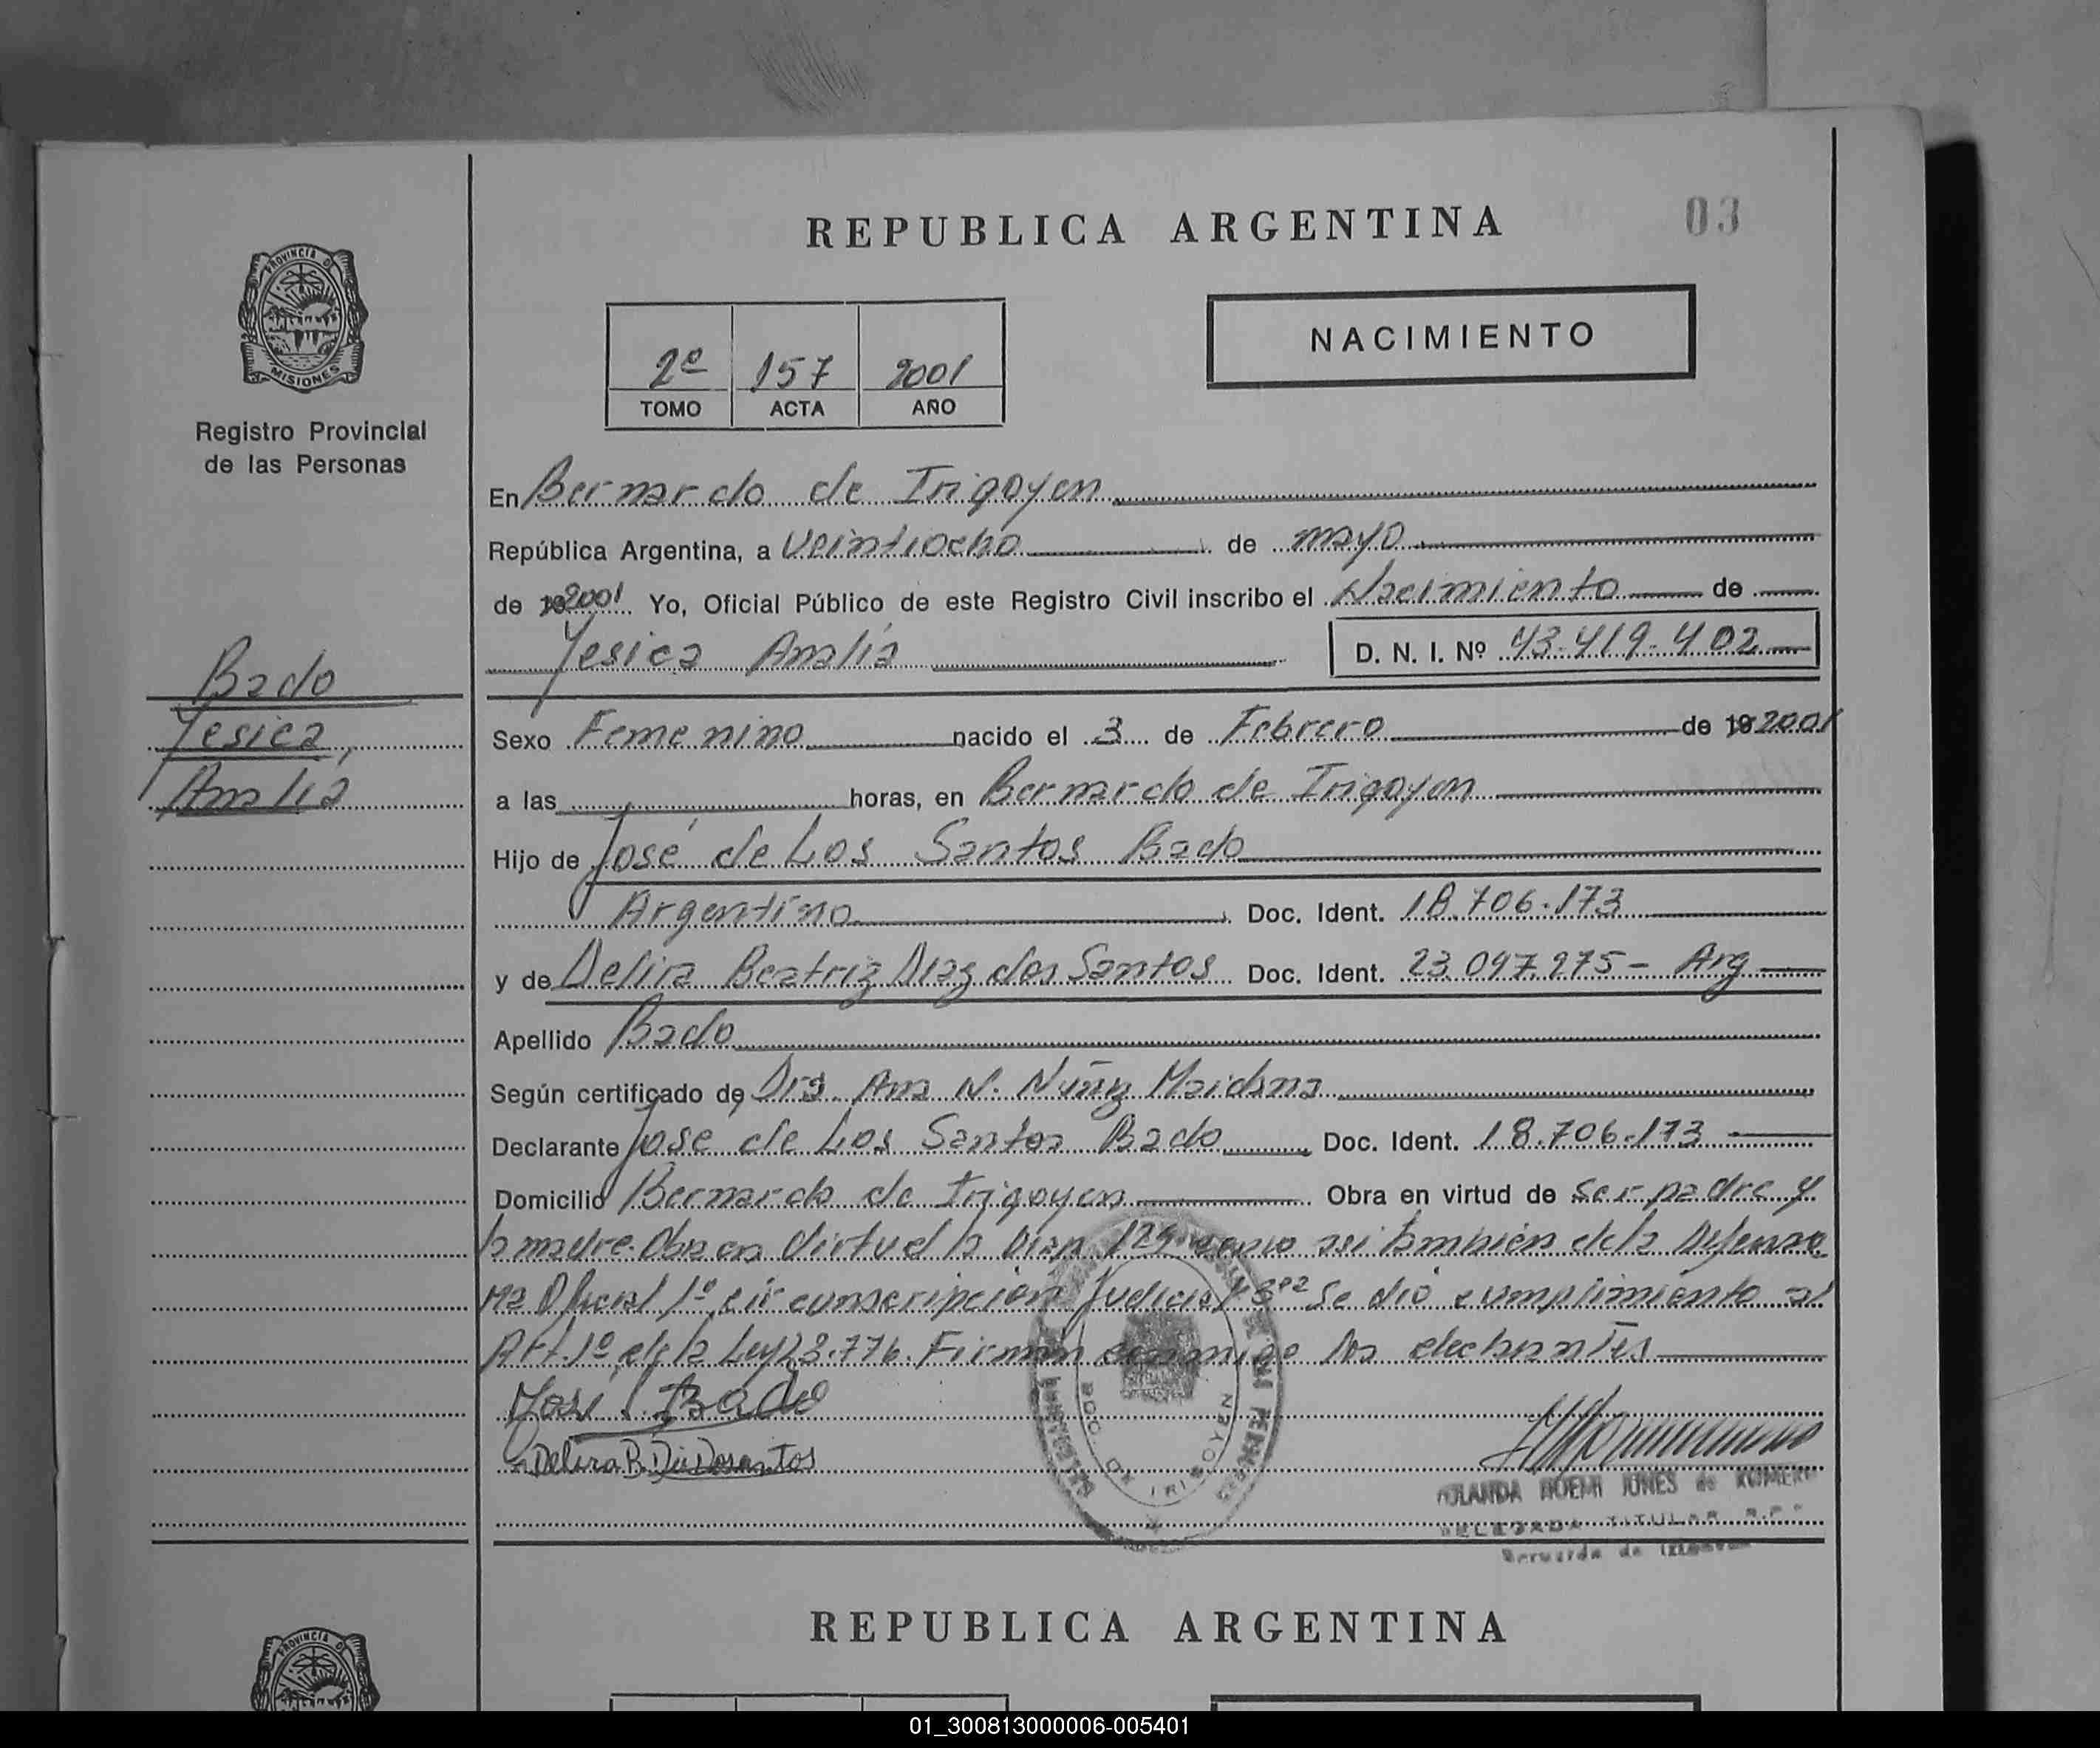 REPUBLICA ARGENTINA
03
PROVINCIA DE
MISIONES
Registro Provincial
de las Personas
NACIMIENTO
2º 157 2001
TOMO ACTA AÑO
En Bernardo de Irigoyen
República Argentina, a Veintiocho de mayo
de 19 2001 Yo, Oficial Público de este Registro Civil inscribo el Nacimiento de
Yesica Analía D. N. I. Nº 43.419.402
Bado
Yesica,
Analía
Sexo Femenino nacido el 3 de Febrero de 19 2001
a las horas, en Bernardo de Irigoyen
Hijo de José de Los Santos Bado
Argentino Doc. Ident. 18.706.173
y de Delira Beatriz Diaz dos Santos Doc. Ident. 23.097.975 - Arg
Apellido Bado
Según certificado de Dra. Ana N. Núñez Maidana
Declarante José de Los Santos Bado Doc. Ident. 18.706.173
Domicilio Bernardo de Irigoyen Obra en virtud de ser padre y
la madre. Obra en virtud la 129 como asi también de la
Oficial 1º circunscripción Judicial Se dió cumplimiento al
Art. 1º de la Ley 23.776. Firman conmigo los declarantes
José Bado
Delira B.
BDO. DE IRIGOYEN
YOLANDA NOEMI JONES de ROMERO
DELEGADA TITULAR R.P.
Bernardo de Irigoyen
REPUBLICA ARGENTINA
PROVINCIA DE
01_300813000006-005401